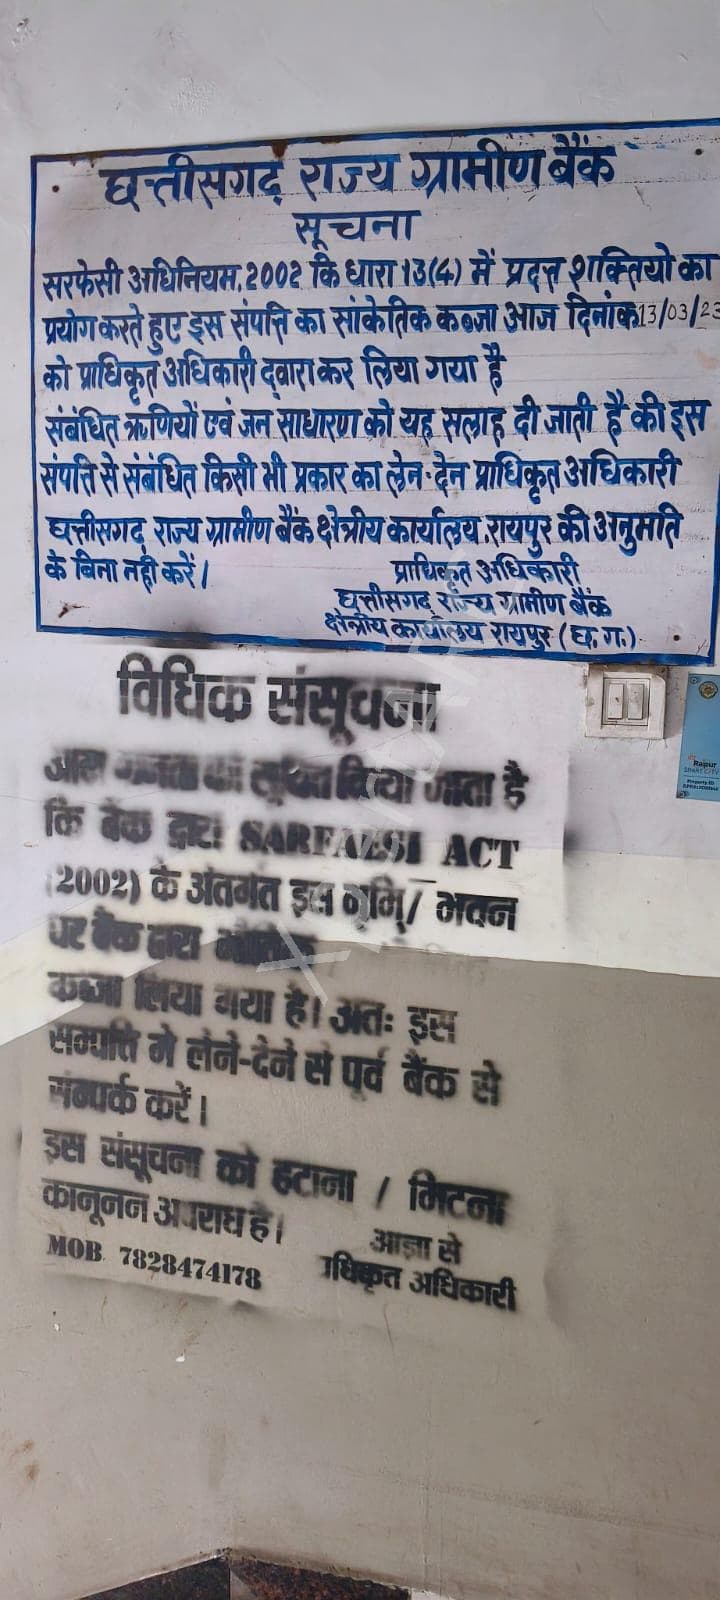 छत्तीसगढ़ राज्य ग्रामीण बैंक
सूचना
सरफेसी अधिनियम,2002 कि धारा 13(4) में प्रदत्त शक्तियो का
प्रयोग करते हुए इस संपत्ति का सांकेतिक कब्जा आज दिनांक 13/03/23
को प्राधिकृत अधिकारी द्वारा कर लिया गया है
संबंधित ऋणियों एवं जन साधारण को यह सलाह दी जाती है की इस
संपत्ति से संबंधित किसी भी प्रकार का लेन-देन प्राधिकृत अधिकारी
छत्तीसगढ़ राज्य ग्रामीण बैंक क्षेत्रीय कार्यालय,रायपुर की अनुमति
के बिना नही करें।
प्राधिकृत अधिकारी
छत्तीसगढ़ राज्य ग्रामीण बैंक
क्षेत्रीय कार्यालय रायपुर (छ.ग.)
विधिक संसूचना
आम जनता को सूचित किया जाता है
कि बैंक द्वारा SARFAESI ACT
(2002) के अंतर्गत इस भूमि/ भवन
पर बैंक द्वारा
कब्जा लिया गया है। अतः इस
सम्पत्ति मे लेने-देने से पूर्व बैंक से
संम्पर्क करें।
इस संसूचना को हटाना / मिटना
कानूनन अपराध है।
आज्ञा से
MOB. 7828474178
अधिकृत अधिकारी
Raipur
Smart City
Property ID